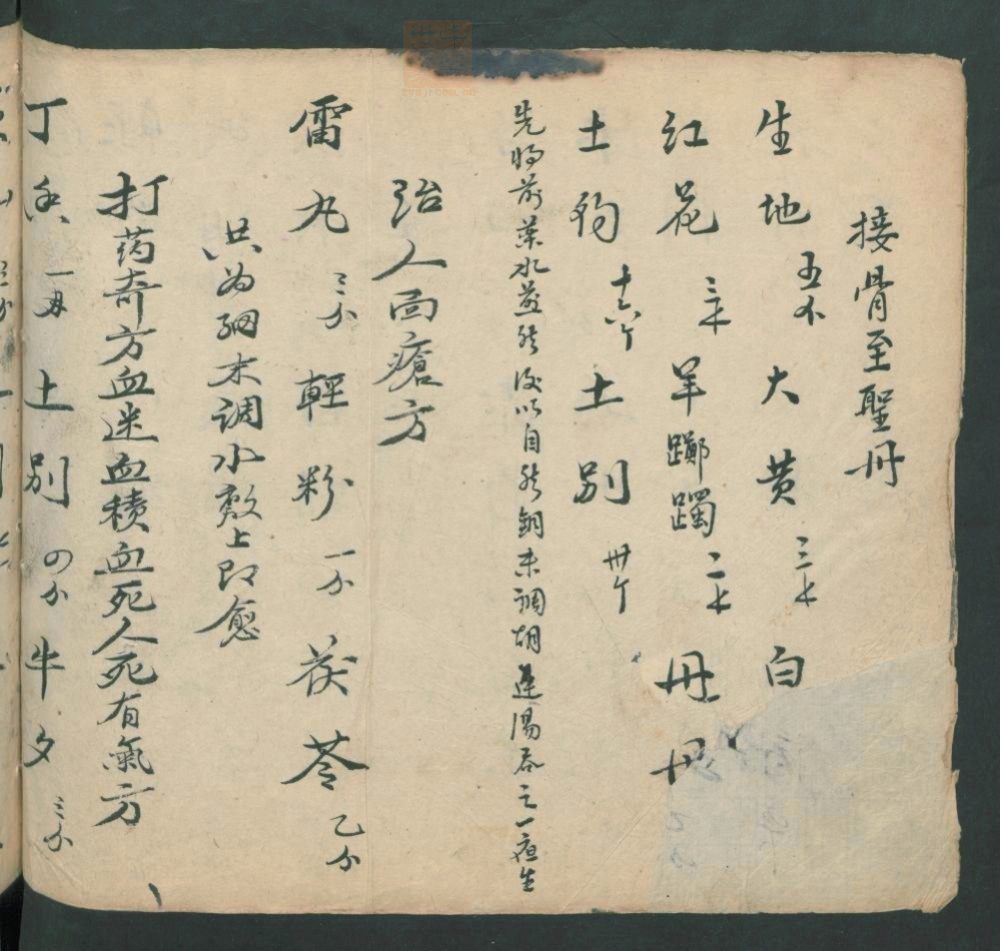 接骨至聖丹
生地 五 大黄 三 白
红花 三 羊躑躅 二 丹皮
土狗 十六个 土别 卅个
先将前藥 然後以自然銅末調胡 湯吞之一
治人面瘡方
雷丸 三分 輕粉 一分 茯苓 乙分
共为細末調水敷上即愈
打药奇方血迷血積血死人死有氣方
丁香 一 土别 四分 牛夕 三分